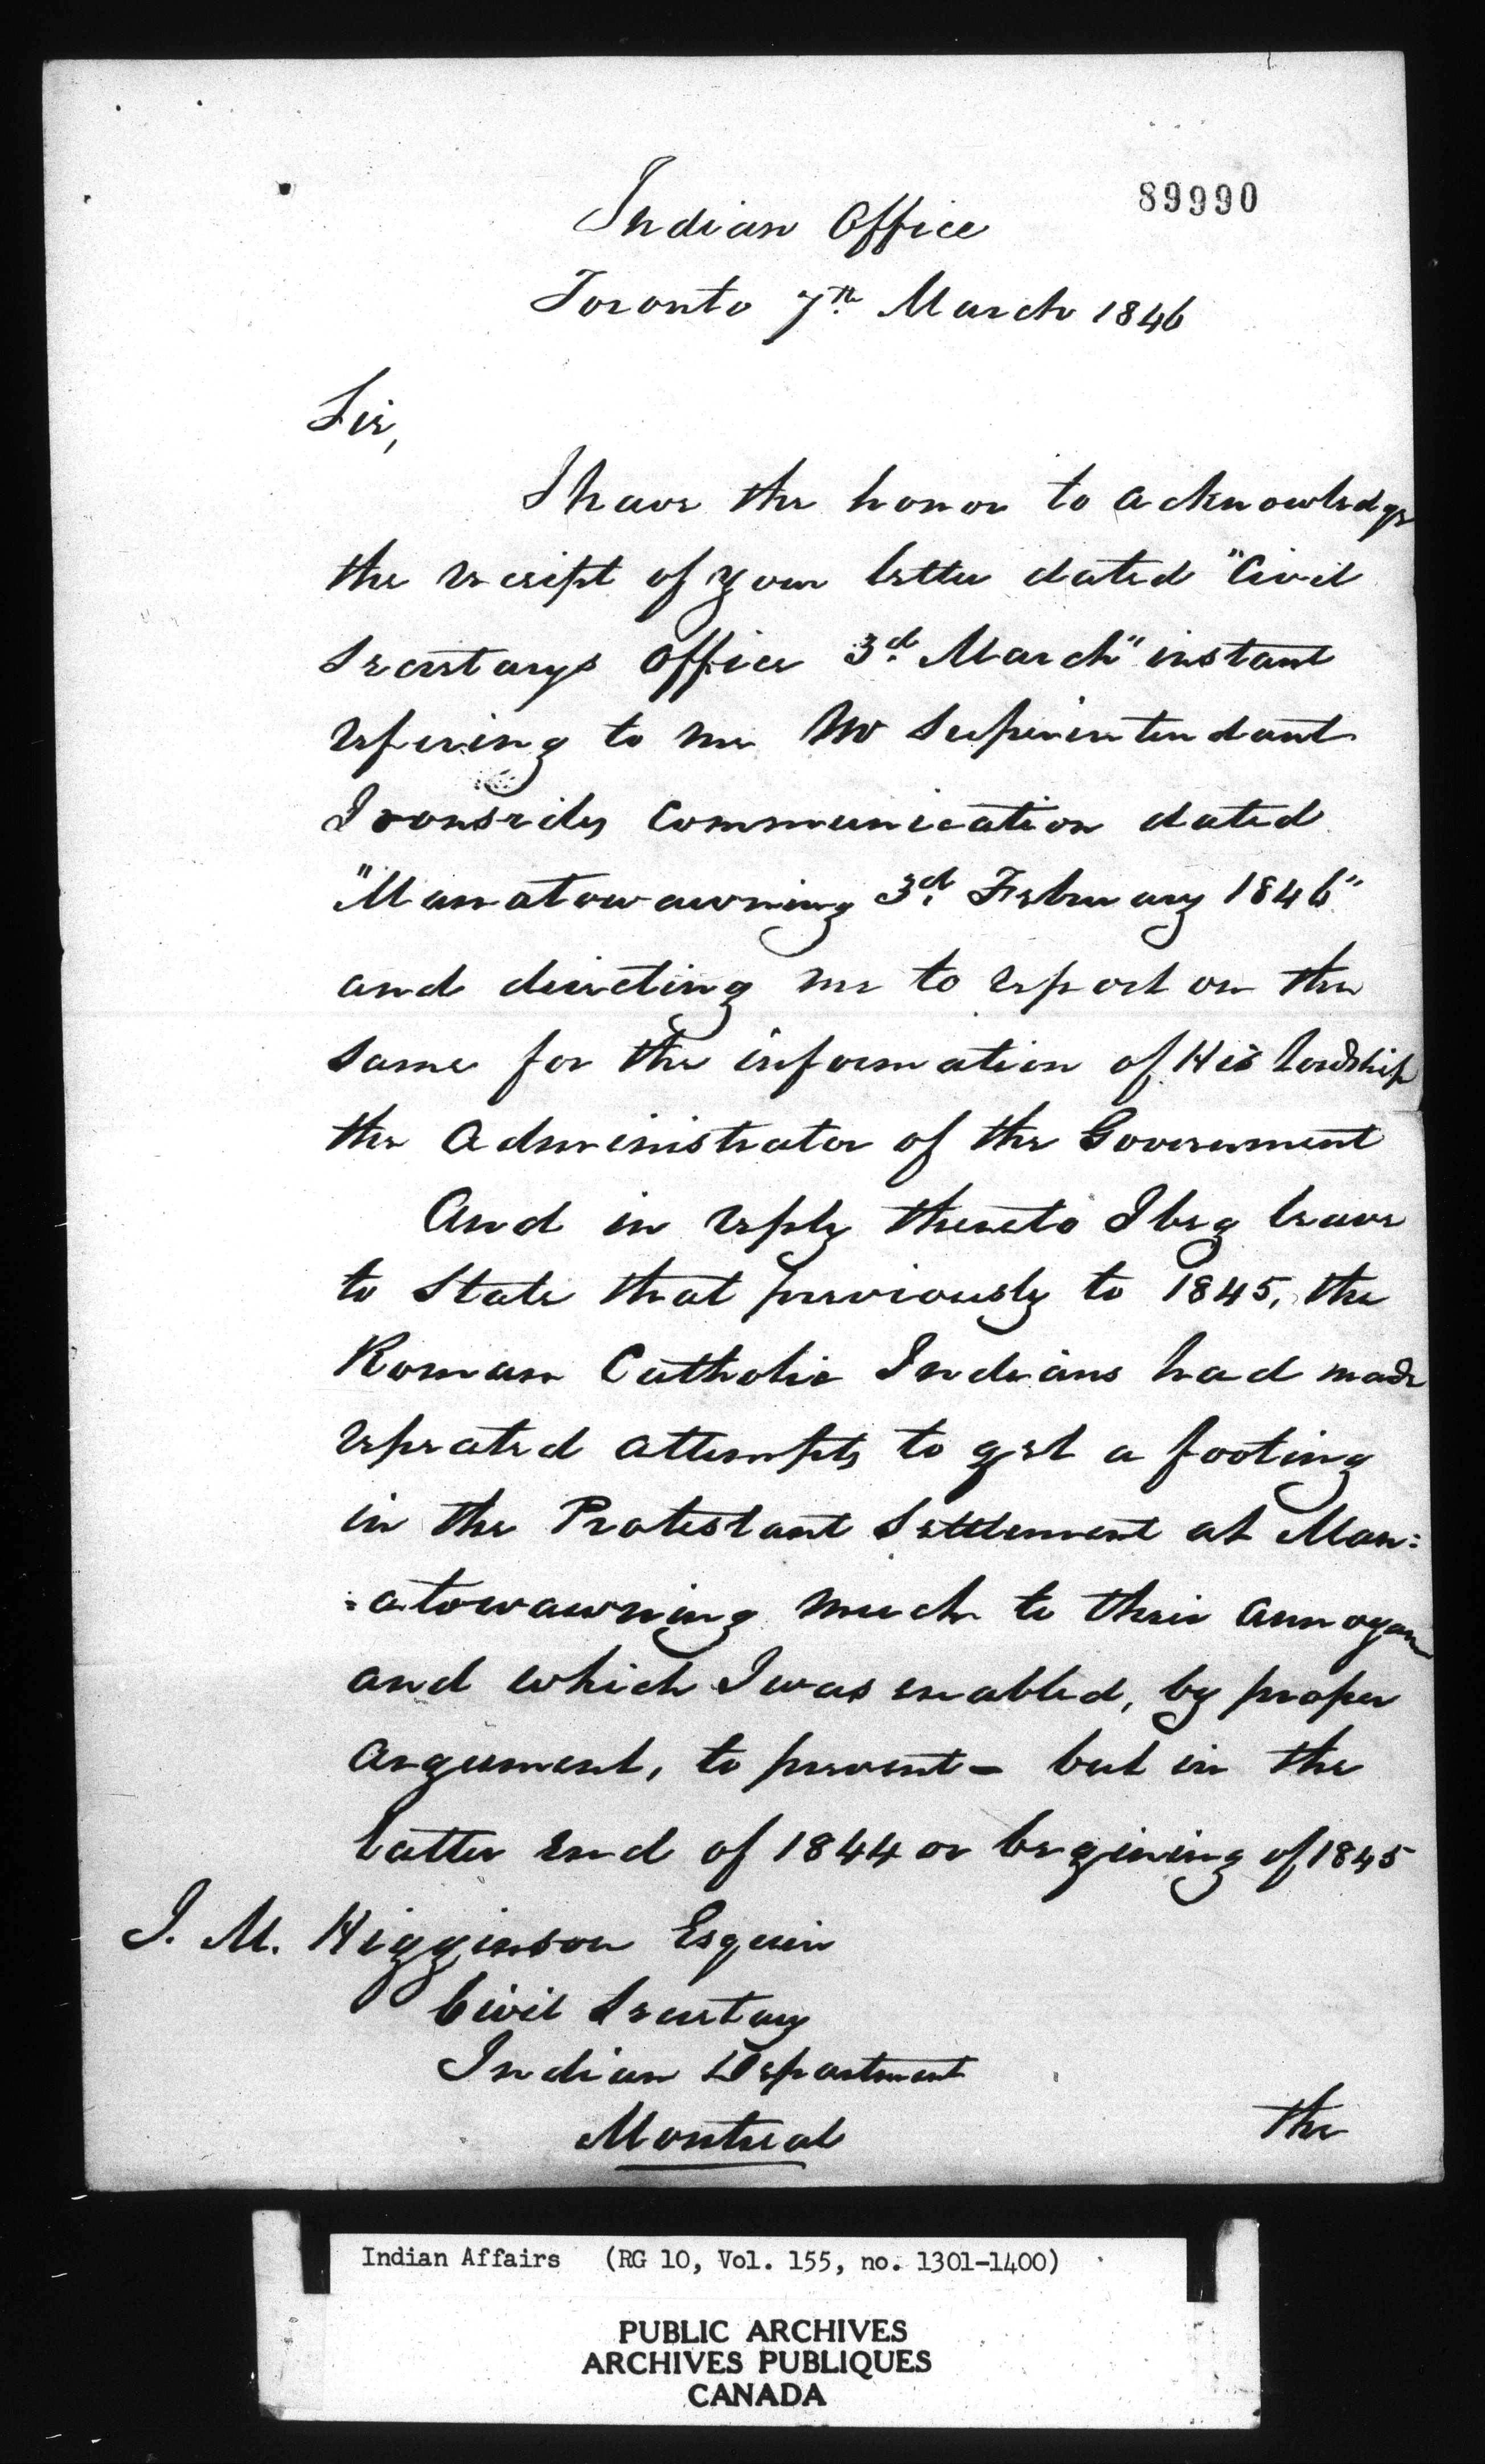 89990
Indian Office
Toronto 7th March 1846
Sir,
I have the honor to acknowledge
the receipt of your letter dated "Civil
Secretarys Office 3d March" instant
refering to me Mr Superintendant
Ironsides Communication dated
"Manatowawning 3d February 1846"
and directing me to report on the
same for the information of His Lordship
the Administrator of the Government
And in reply thereto I beg leave
to State that previously to 1845, the
Roman Catholic Indians had made
repeated attempts to get a footing
in the Protestant Settlement at Man:
:atowawning much to their annoyan
and which I was enabled, by proper
argument, to prevent - but in the
latter end of 1844 or begining of 1845
J. M. Higginson Esquire
Civil Secretary
Indian Department
Montreal
the
Indian Affairs (RG 10, Vol. 155, no. 1301-1400)
PUBLIC ARCHIVES
ARCHIVES PUBLIQUES
CANADA